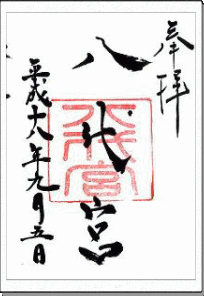 奉拝
八代宮
八代宮
平成十八年九月五日